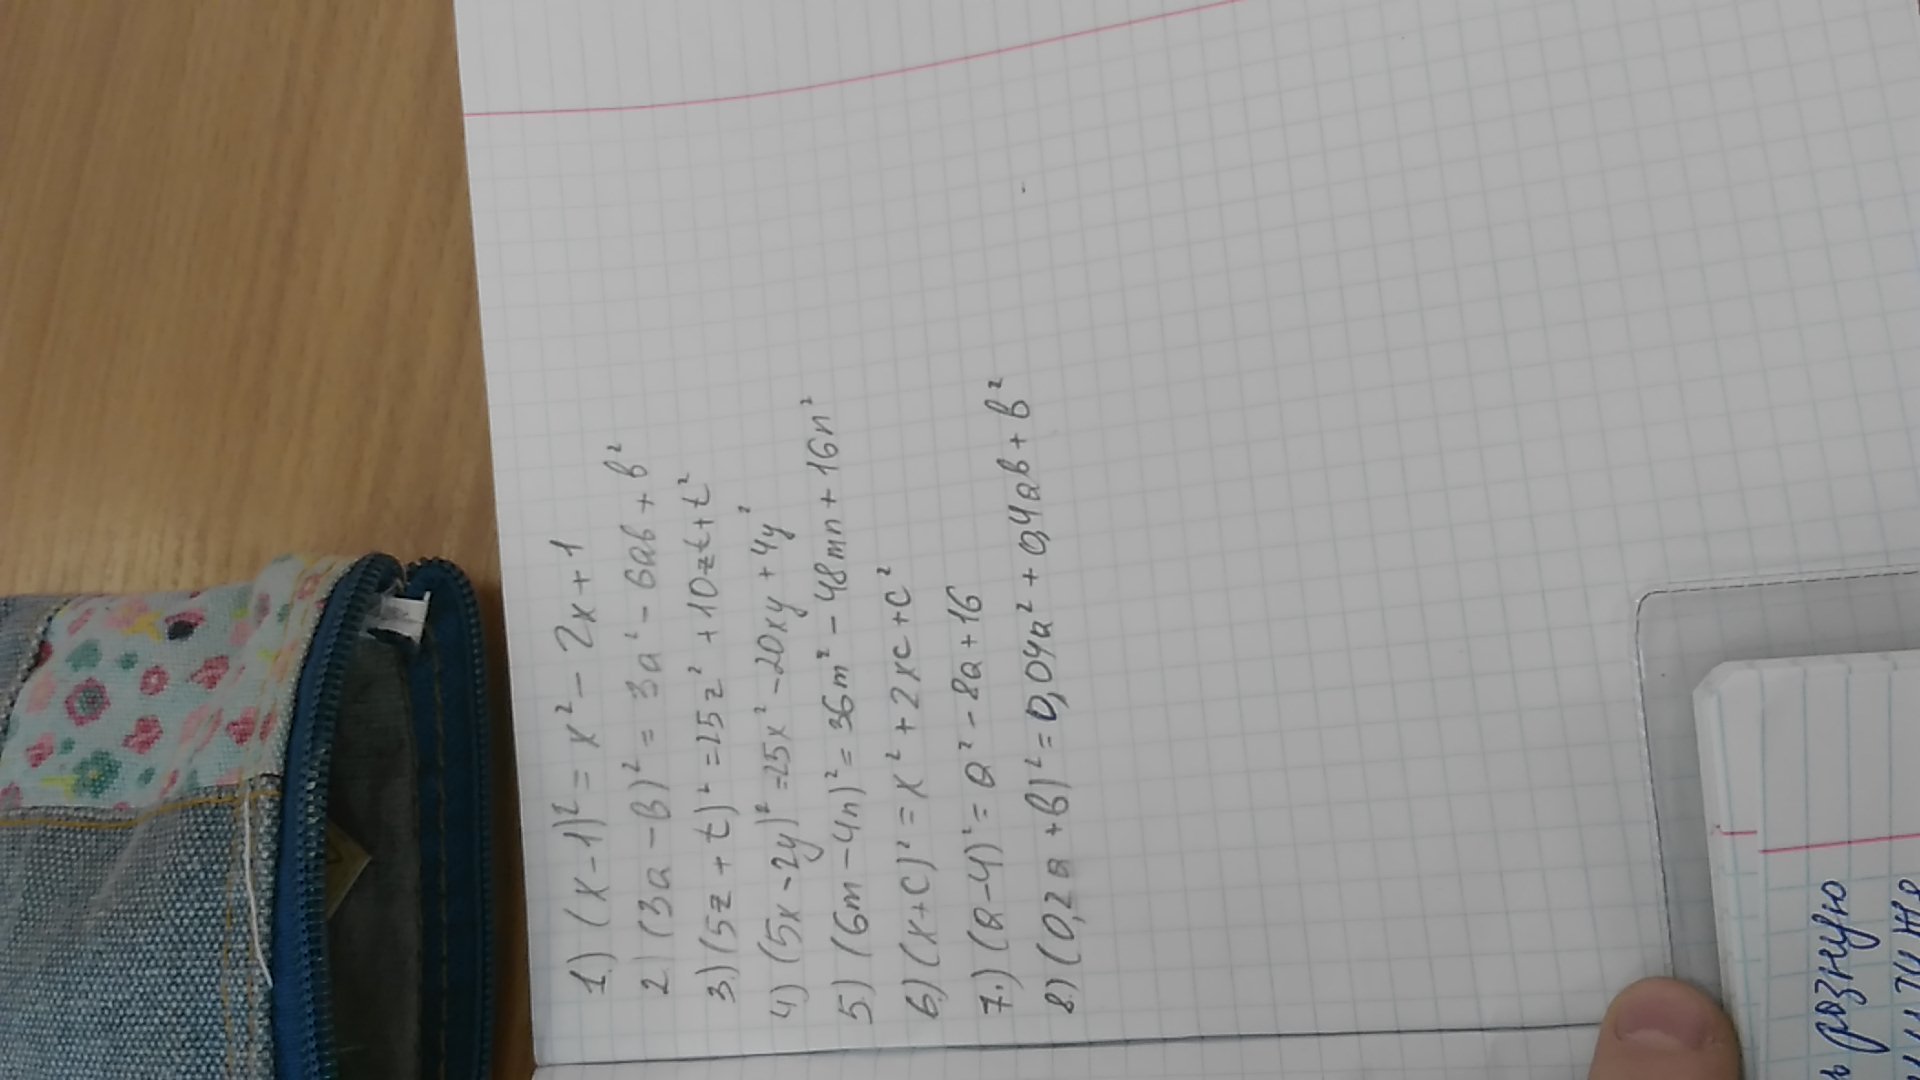 1.) (x-1)² = x² - 2x + 1
2) (3a - b)² = 3a² - 6ab + b²
3.) (5z + t)² = 25z² + 10zt + t²
4) (5x - 2y)² = 25x² - 20xy + 4y²
5.) (6m - 4n)² = 36m² - 48mn + 16n²
6.) (x+c)² = x² + 2xc + c²
7.) (a-4)² = a² - 8a + 16
8.) (0,2a + b)² = 0,04a² + 0,4ab + b²
разную